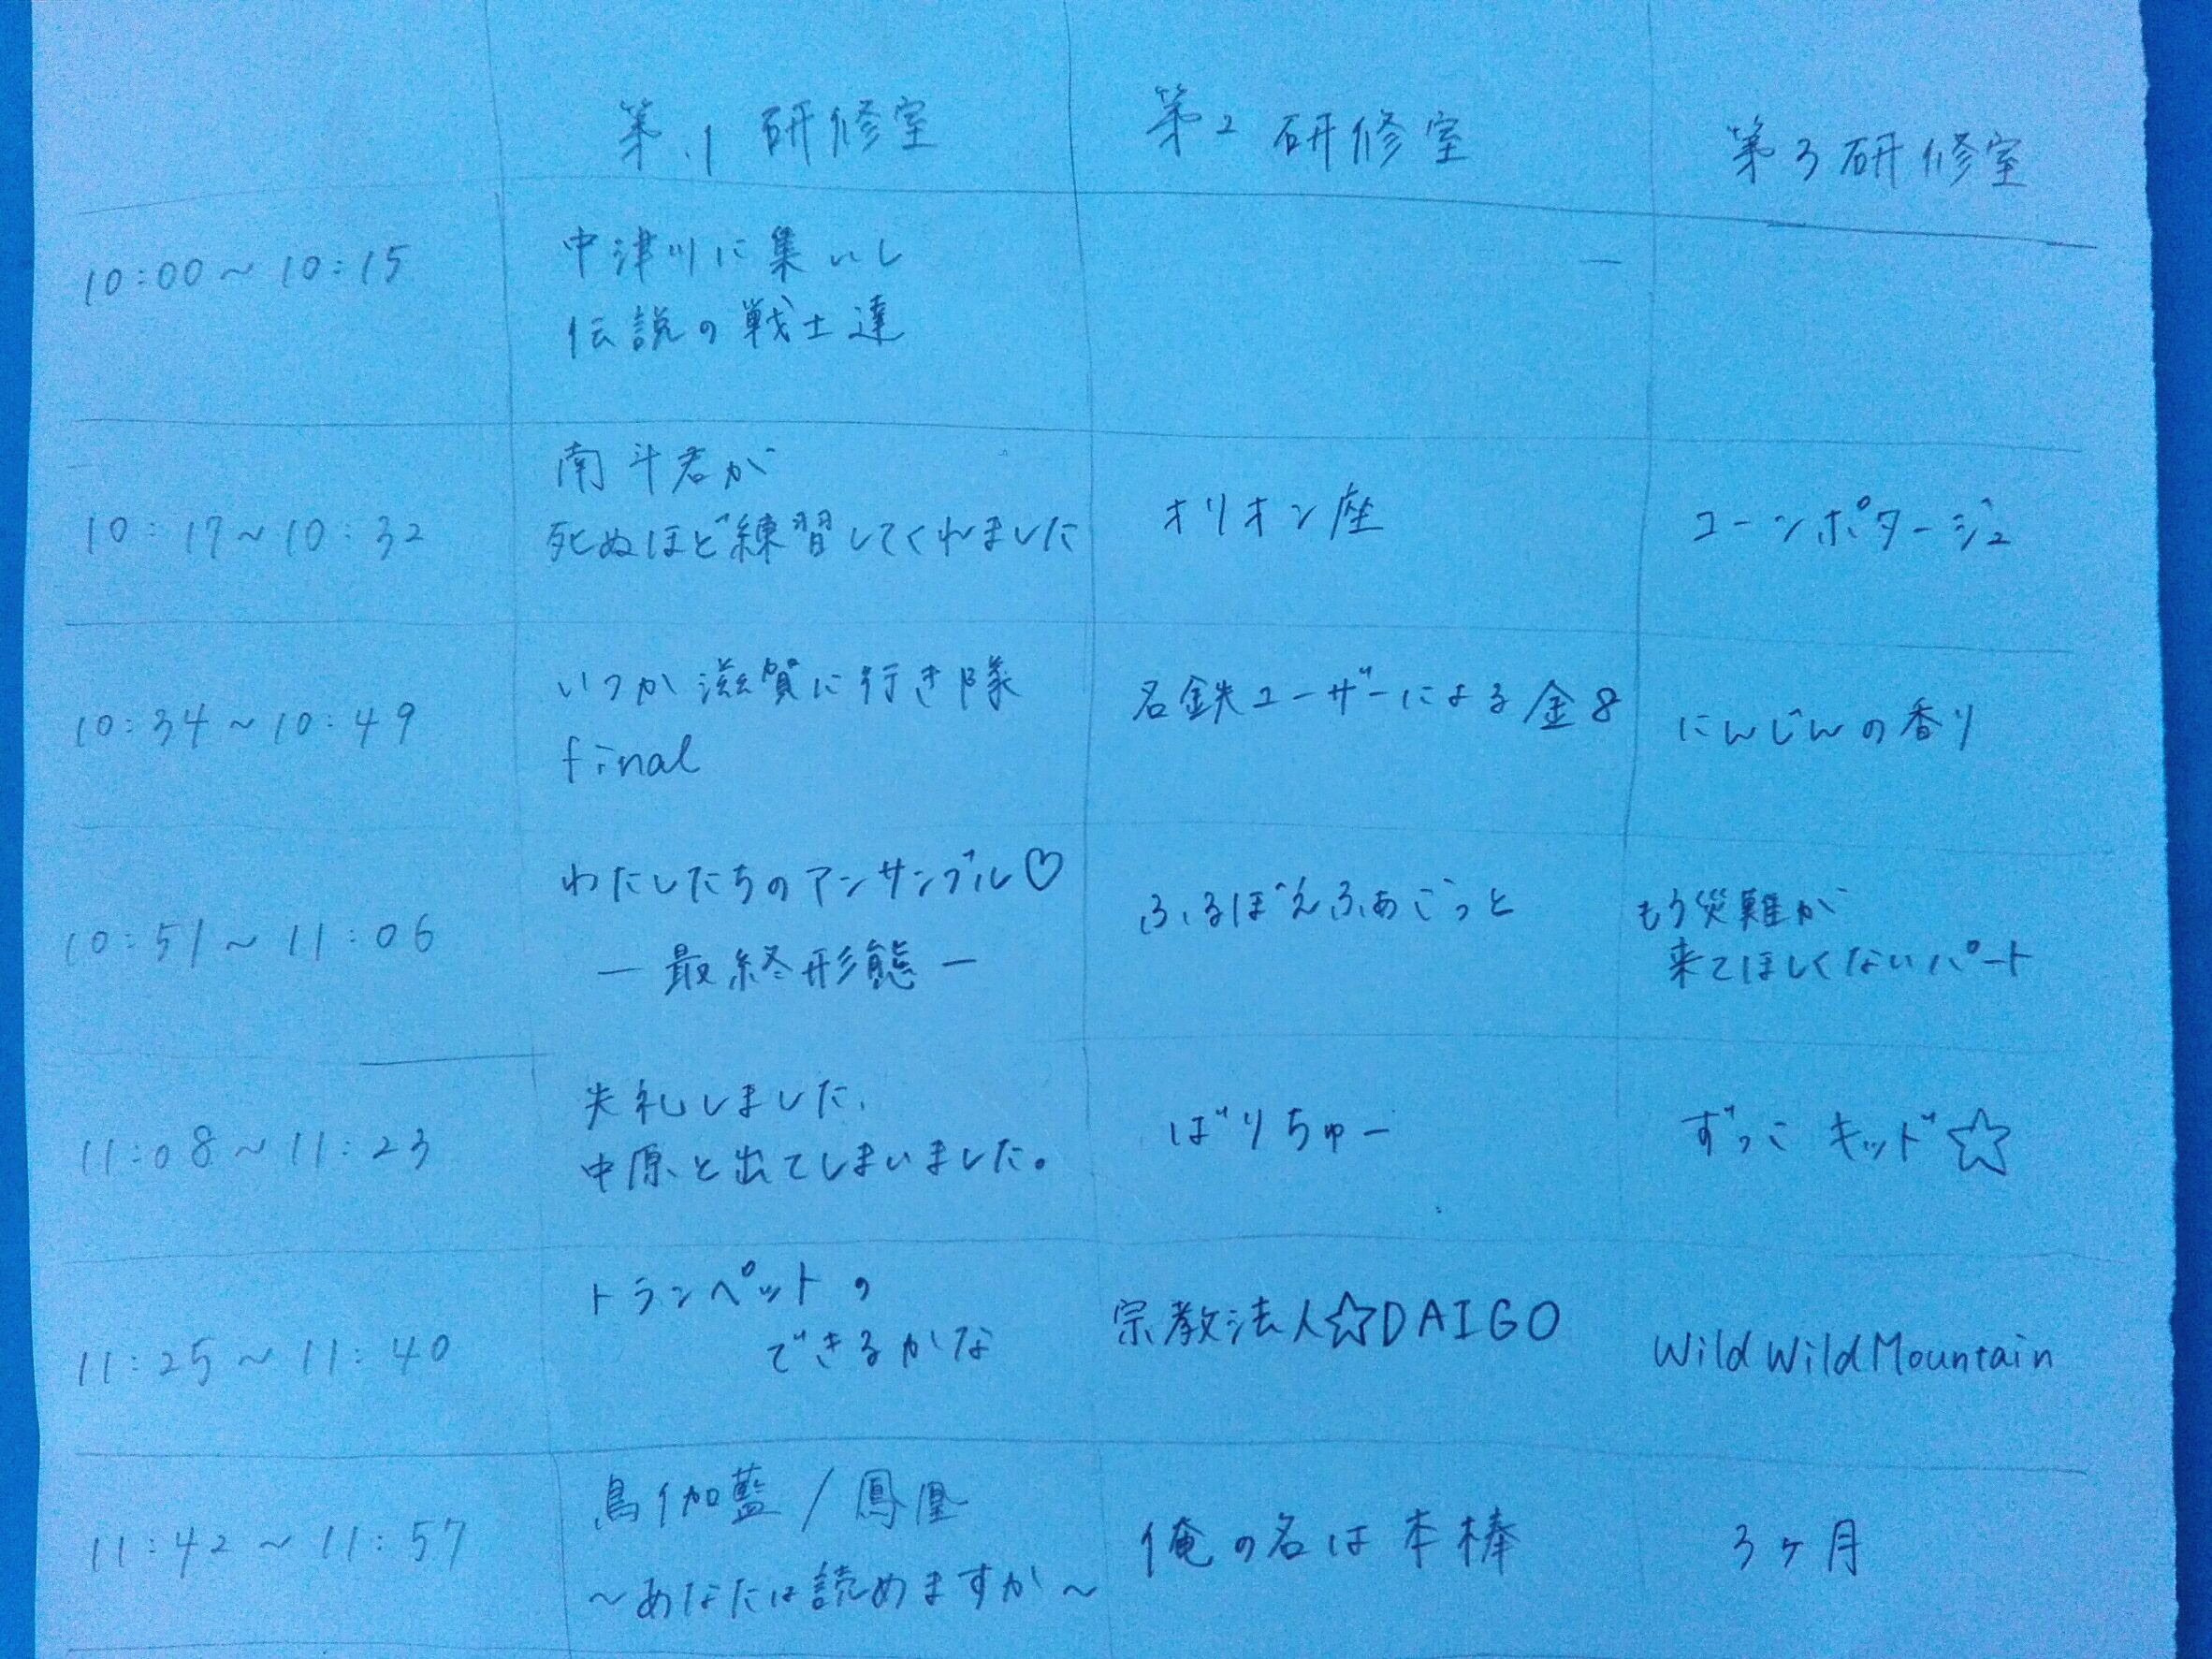 第1研修室 第2研修室 第3研修室
10:00～10:15
中津川に集いし
伝説の戦士達
10:17～10:32
南斗君が
死ぬほど練習してくれました
オリオン座
コーンポタージュ
10:34～10:49
いつか滋賀に行き隊
final
名鉄ユーザーによる金8
にんじんの香り
10:51～11:06
わたしたちのアンサンブル♡
―最終形態―
ふるぼえふぁごっと
もう災難が
来てほしくないパート
11:08～11:23
失礼しました、
中原と出てしまいました。
ばりちゅー
ずっこキッド☆
11:25～11:40
トランペットの
できるかな
宗教法人☆DAIGO
Wild Wild Mountain
11:42～11:57
鳥伽藍/鳳凰
～あなたは読めますか～
俺の名は本棒
3ヶ月